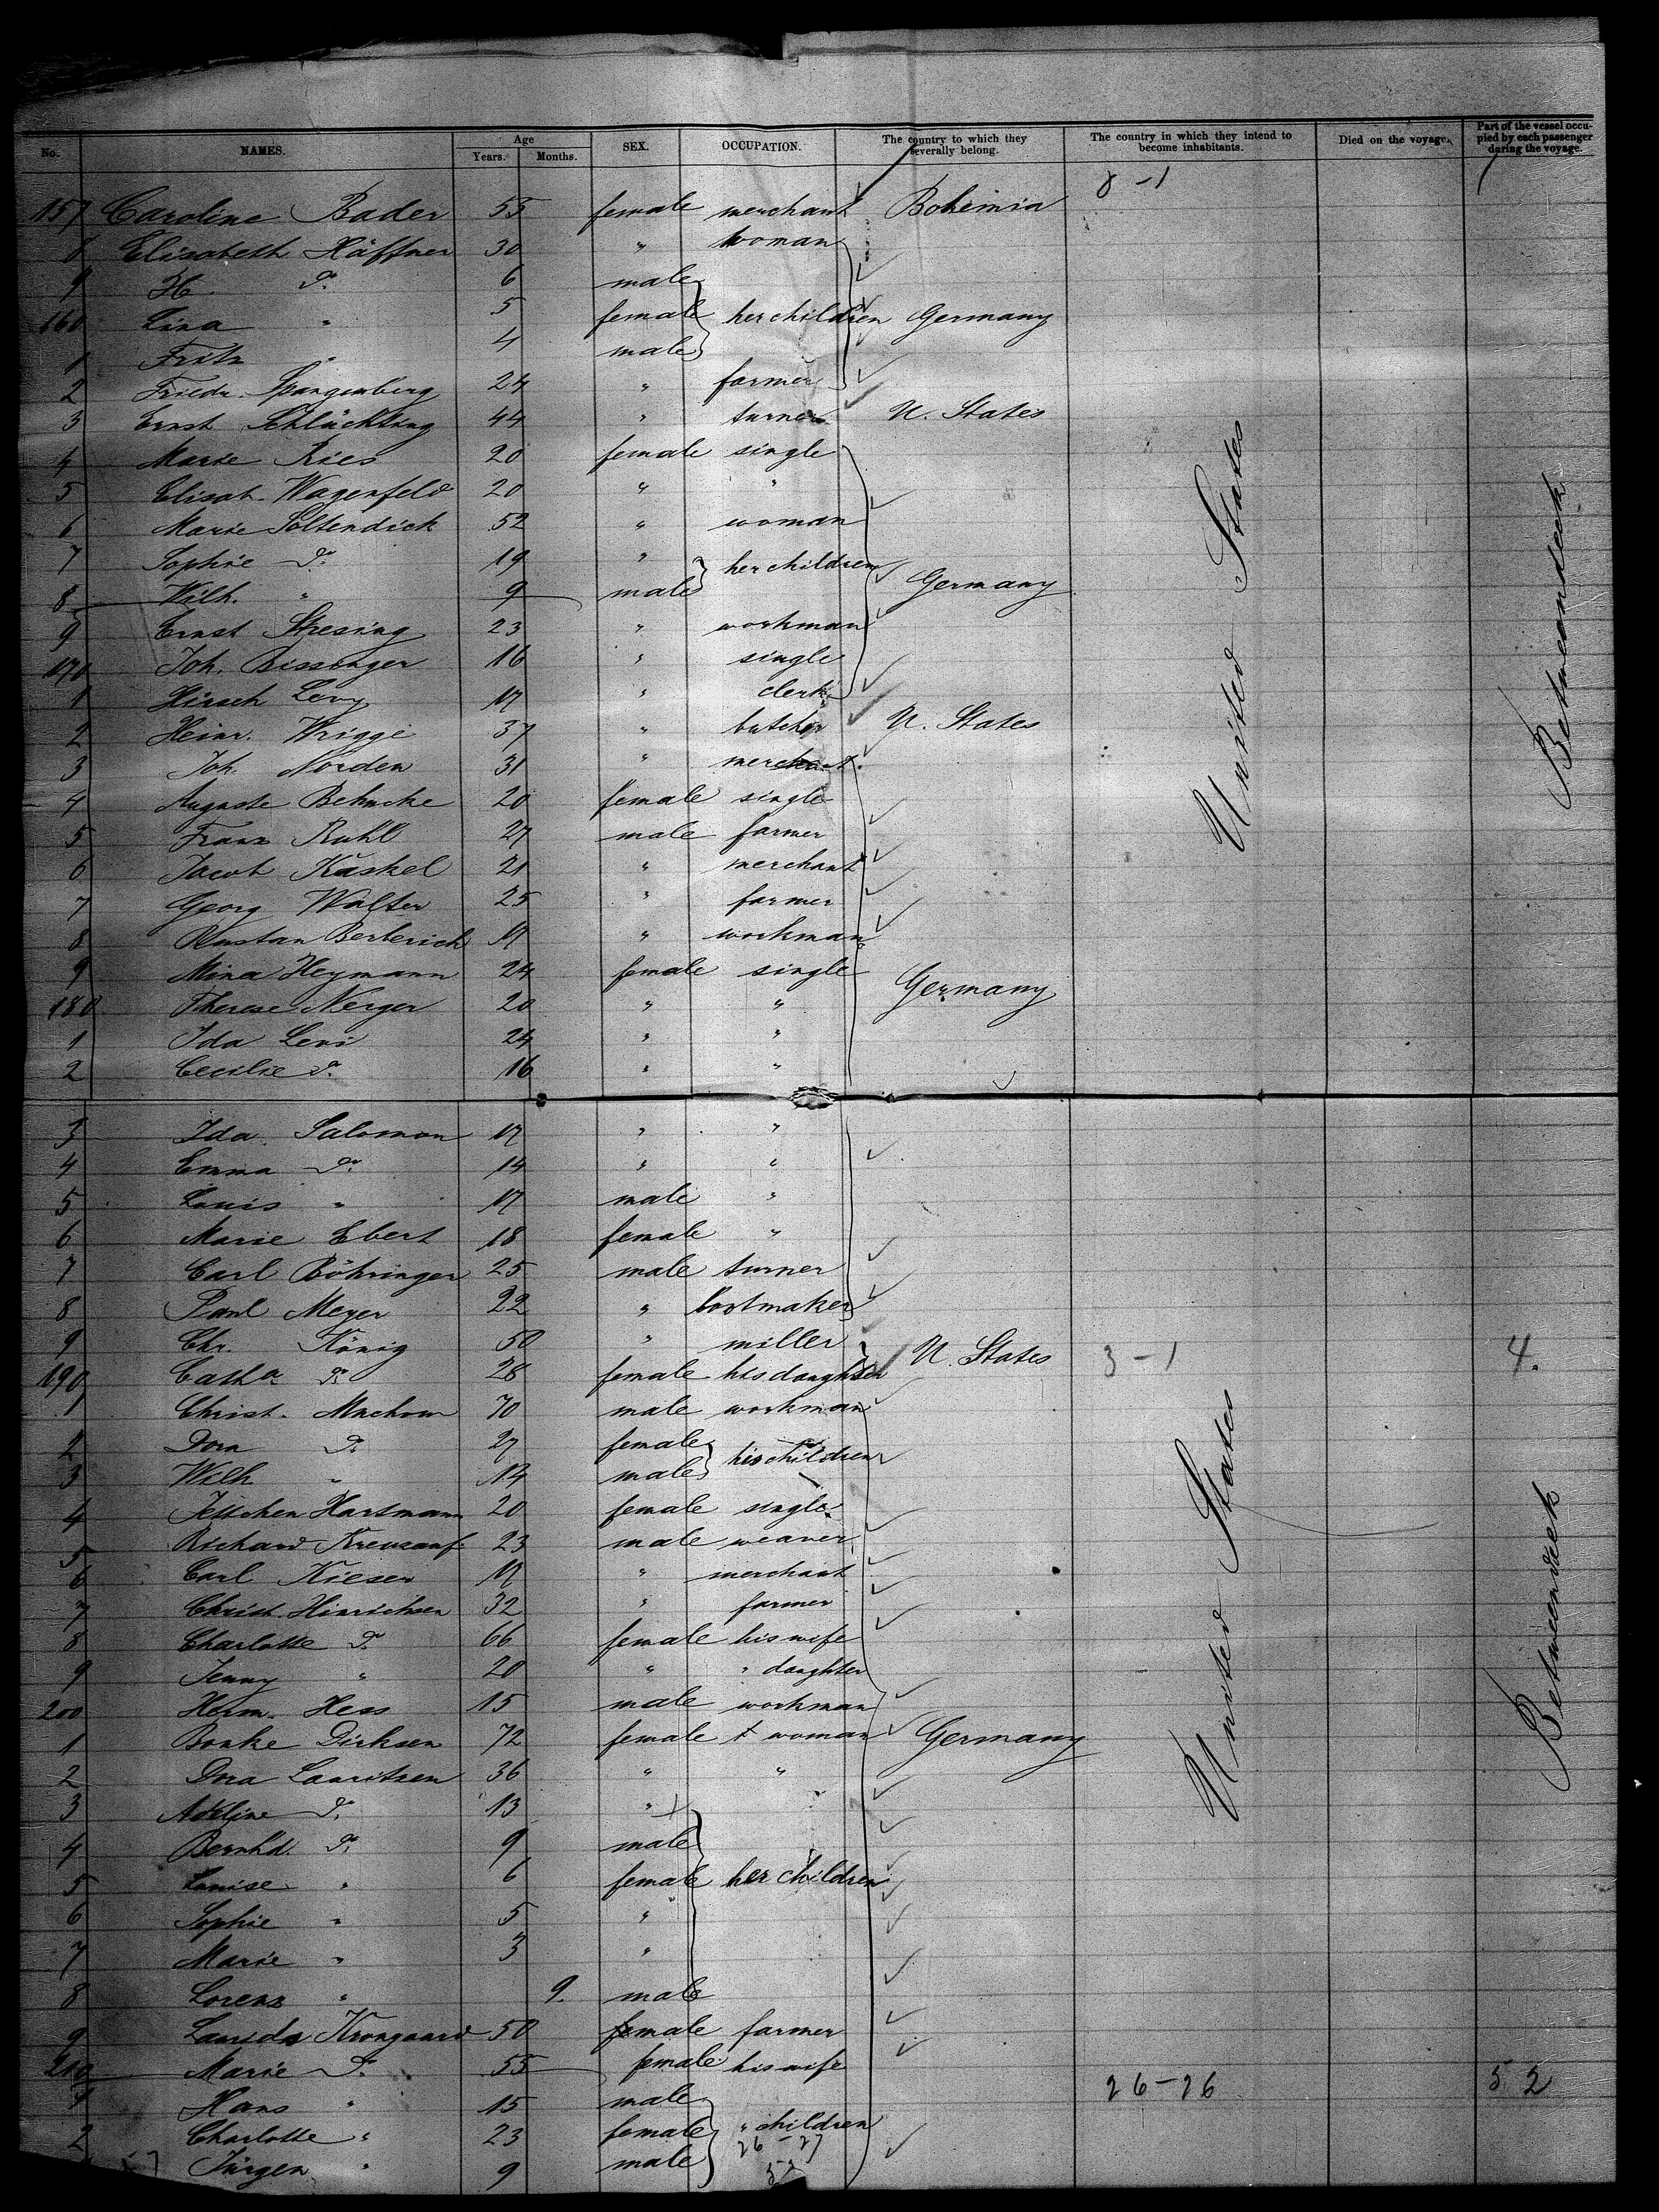 No. NAMES. Age Years. Months. SEX. OCCUPATION. The country to which they severally belong. The country in which they intend to become inhabitants. Died on the voyage. Part of the vessel occupied by each passenger during the voyage.
8-1
157 Caroline Bader 55 female merchant Bohemia
8 Elisabeth Häffner 30 " woman
9 H. do. 6 male
160 Lina " 5 female her children Germany
1 Fritz " 4 male
2 Friedr. Spangenberg 24 " farmer
3 Ernst Schlüchting 44 " turner U. States
4 Marie Ries 20 female single
5 Elisab. Wagenfeld 20 " "
6 Marie Soltendick 52 " woman
7 Sophie do. 19 " her children
8 Wilh. " 9 male Germany
9 Ernst Stresing 23 " workman
170 Joh. Bissinger 16 " single
1 Hirsch Levy 17 " clerk
2 Heinr. Wrigge 37 " butcher U. States
3 Joh. Norden 31 " merchant
4 Auguste Behncke 20 female single
5 Franz Ruhl 27 male farmer
6 Jacob Kaskel 21 " merchant
7 Georg Walter 25 " farmer
8 Gustav Berberich 17 " workman
9 Mina Heymann 24 female single
180 Therese Nerger 20 " " Germany
1 Ida Levi 24 " "
2 Cecilie do. 16 " "
United States
Betweendeck
3 Ida Salomon 17 " "
4 Emma do. 14 " "
5 Louis " 17 male "
6 Marie Ebert 18 female "
7 Carl Böhringer 25 male turner
8 Paul Meyer 22 " bootmaker
9 Chr. König 50 " miller U. States 3-1 4.
190 Catha do. 28 female his daughter
1 Christ. Machow 70 male workman
2 Dora do. 27 female his children
3 Wilh " 14 male
4 Jettchen Hartmann 20 female single
5 Richard Kreusauf 23 male weaver
6 Carl Kieser 17 " merchant
7 Christ. Hinrichsen 32 " farmer
8 Charlotte do. 66 female his wife
9 Jenny " 20 " " daughter
200 Herm. Hess 15 male workman
1 Bonke Dirksen 72 female woman Germany
2 Dora Lauritzen 36 " "
3 Adeline do. 13 "
4 Bernhd. do. 9 male
5 Louise " 6 female her children
6 Sophie " 5 "
7 Marie " 3 "
8 Lorenz " 9. male
9 Laurids Krongaard 50 male farmer
210 Marie do. 55 female his wife
1 Hans " 15 male 26-26 52
2 Charlotte " 23 female " children
26-27
Jürgen " 9 male
United States
Betweendeck